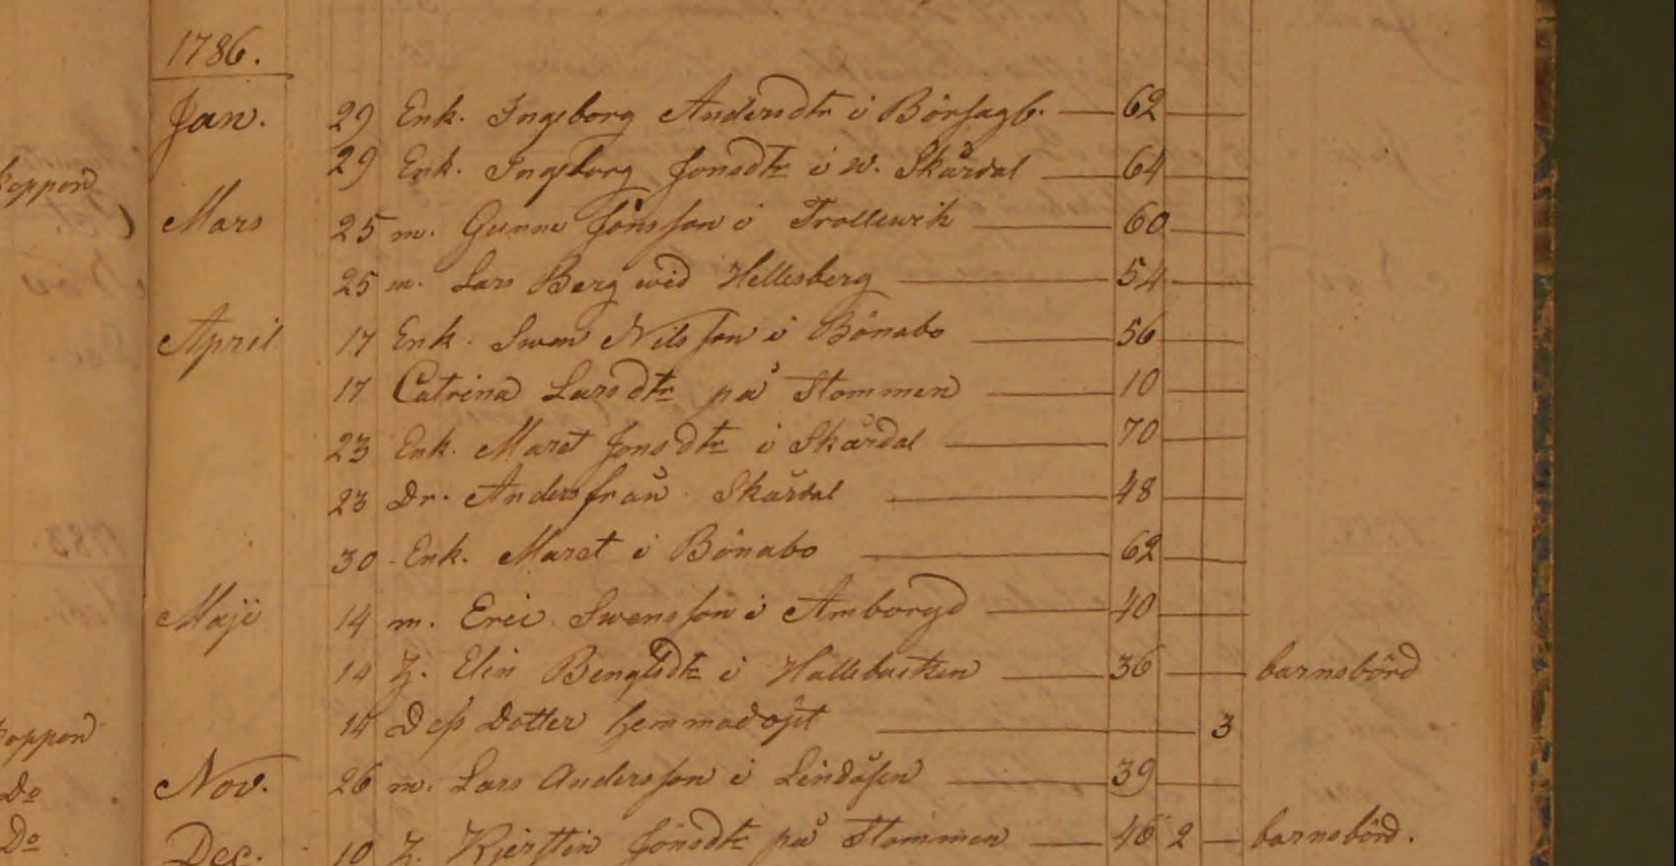 1786.
Jan. 29 Enk. Ingeborg Andersdtr i Börsagb. 62
29 Enk. Ingeborg Jonsdtr i W. Skårdal 64
Mars 25 m. Gunne Jönsson i Trollewik 60
25 m. Lars Berg wid Hellesberg 54
April 17 Enk. Swen Nilsson i Bönabo 56
17 Catrina Larsdtr på Stommen 10
23 Enk. Maret Jonsdtr i Skårdal 70
23 Dr. Anders från Skårdal 48
30 Enk. Maret i Bönabo 62
Maji 14 m. Eric Swensson i Amboryd 40
14 H. Elin Bengtsdtr i Hallebacken 36 barnsbörd
14 Dess Dotter hemmadöpt 3
Nov. 26 m. Lars Andersson i Lindåsen 39
Dec. 10 H. Kjerstin Jönsdtr på Stommen 46 2 barnsbörd.
koppor
koppor
Do
Do